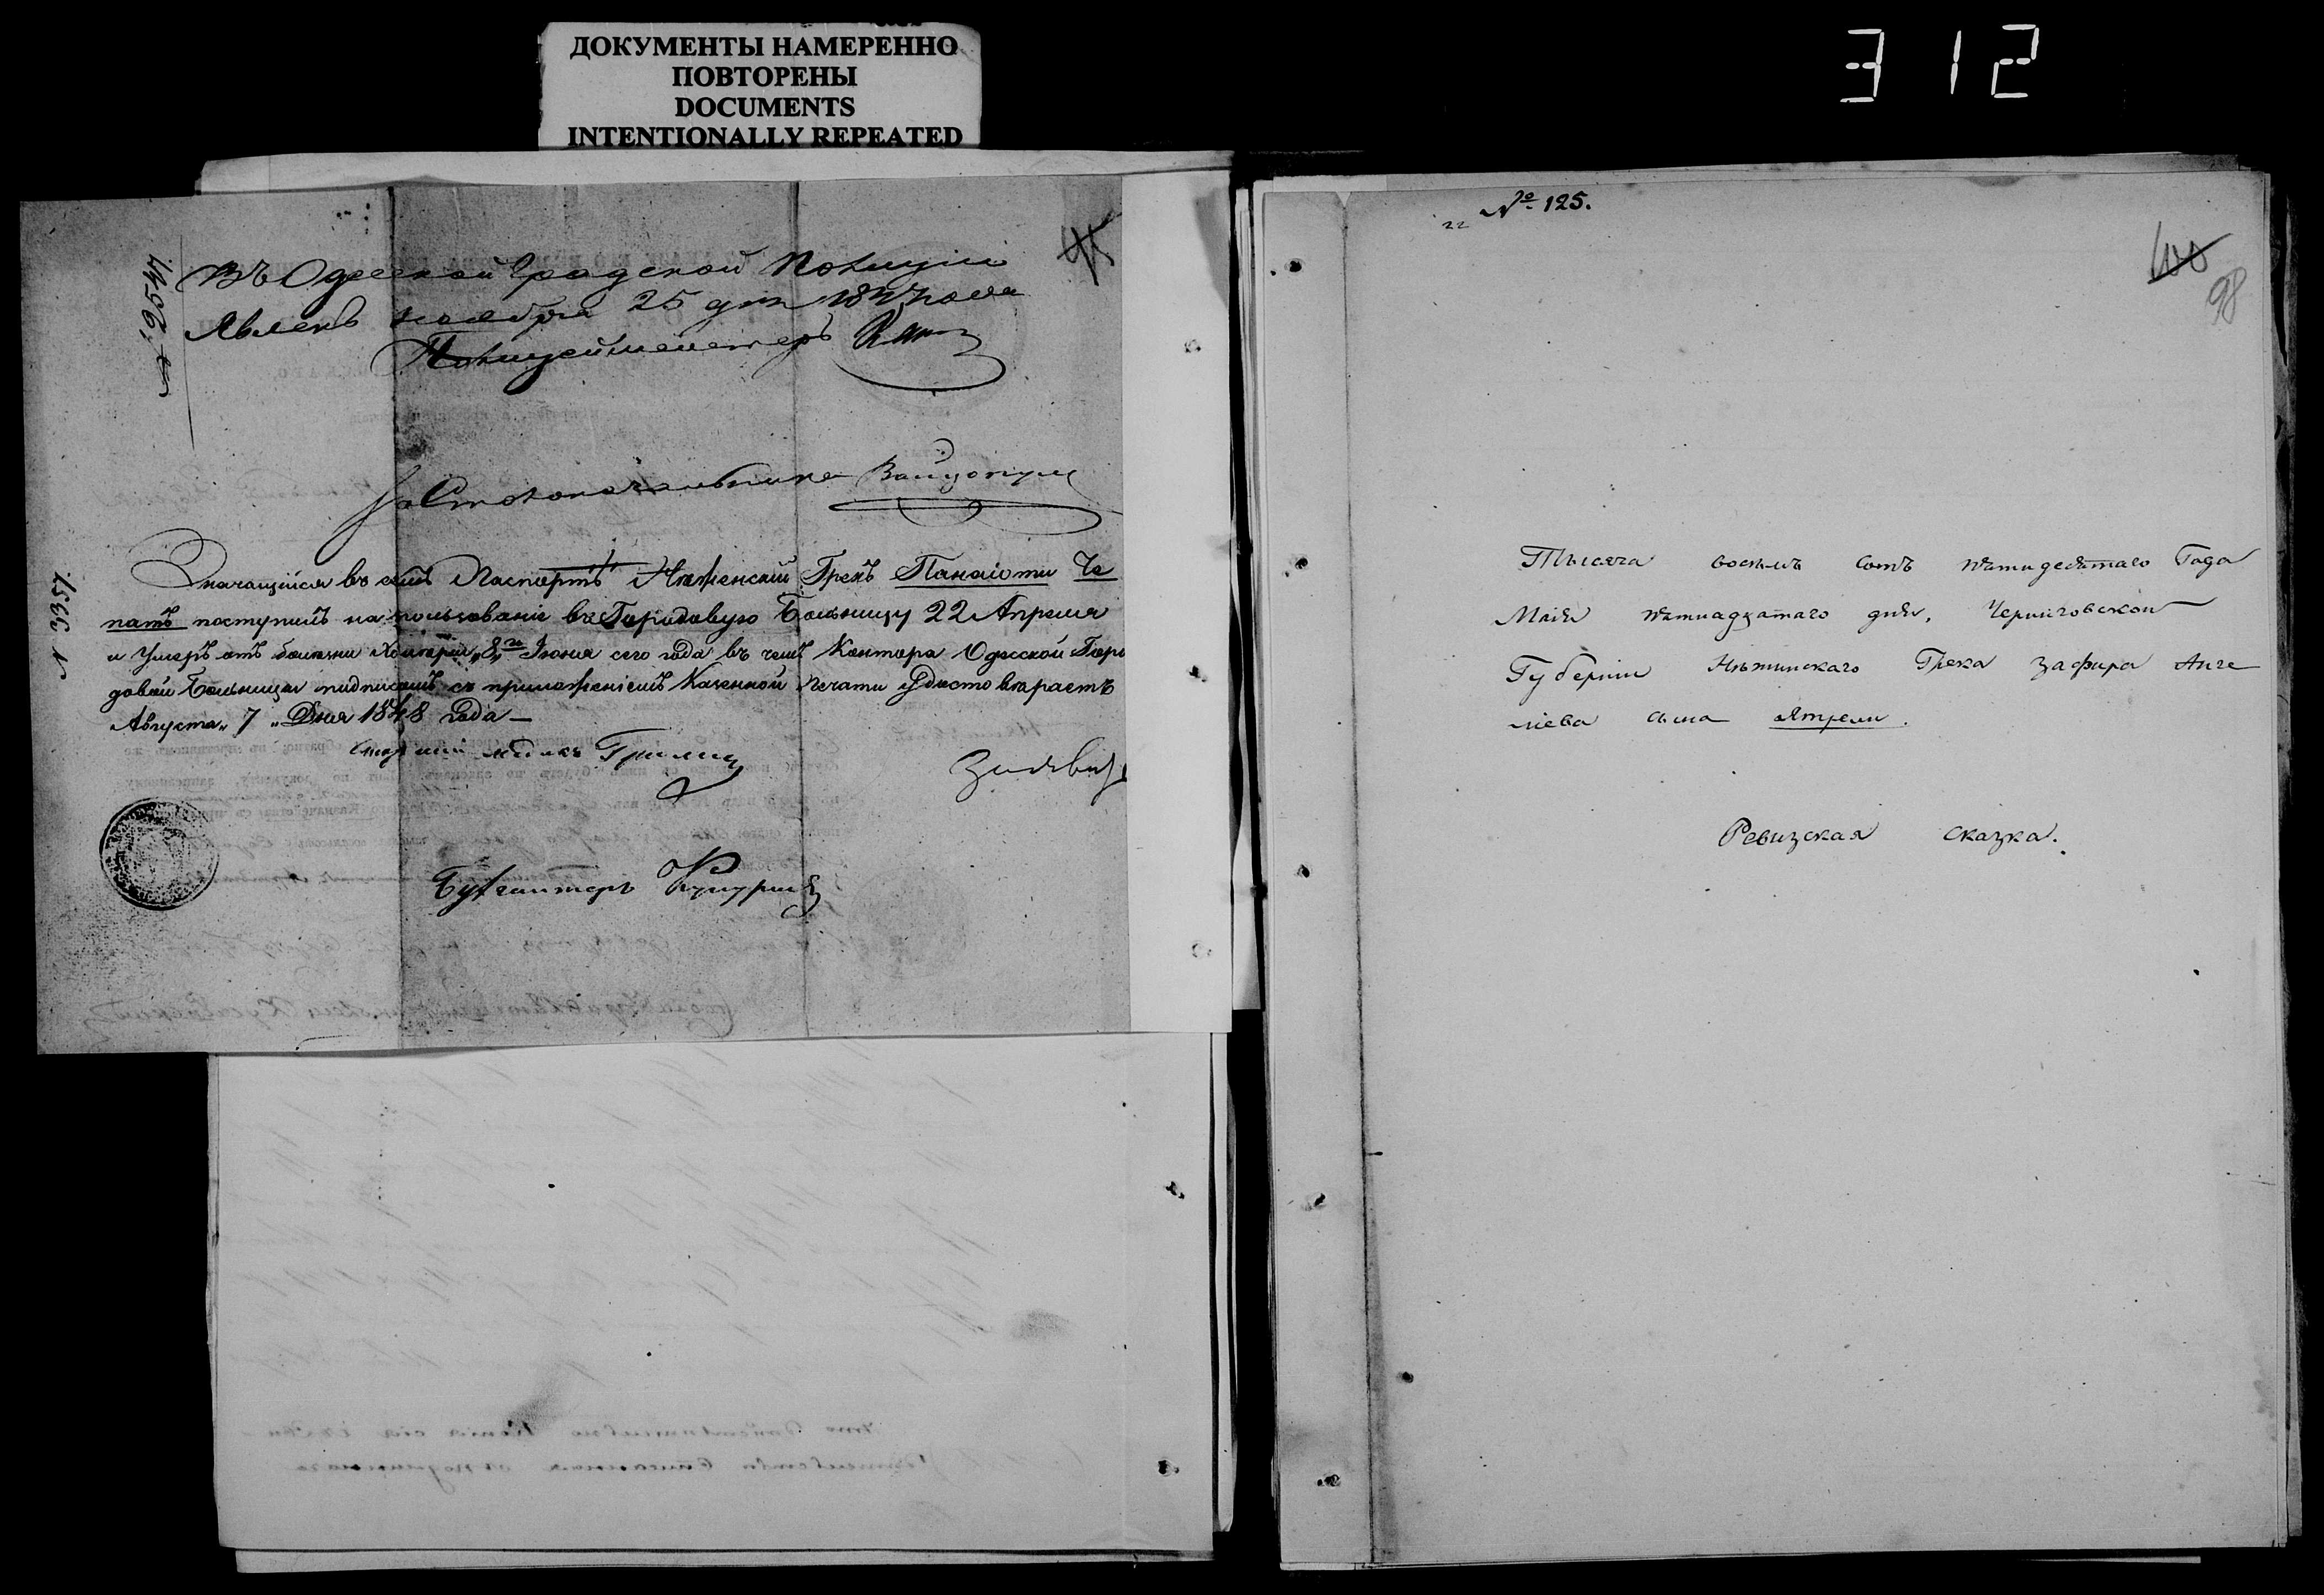 ДОКУМЕНТЫ НАМЕРЕННО
ПОВТОРЕНЫ
DOCUMENTS
INTENTIONALLY REPEATED
312
Въ Одесской Градской Полиціи
Явленъ ноября 25 дня 1847 года
Полицеймейстеръ
За Столоначальника
N 3357.
Значащійся въ семъ Паспортѣ Нѣженскій Грекъ Панаіоти Че
патъ поступилъ на пользованіе въ Городовую Больницу 22 Апреля
и Умеръ отъ болезни Холеріи „8„ го Іюня сего года въ чемъ Контора Одесской Горо
довой Больницы подписомъ съ приложеніемъ Казенной Печати удостовѣраетъ
Августа „ 7 „ Дня 1848 года —
Старшій медикъ
Бухгалтеръ
№ 125.
100
98
Тысяча восемь сотъ пятидесятаго Года
Маія пятнадцатаго дня, Черниговской
Губерніи Нѣжинскаго Грека Зафира Анге
лієва сына Ятрели.
Ревизская сказка.